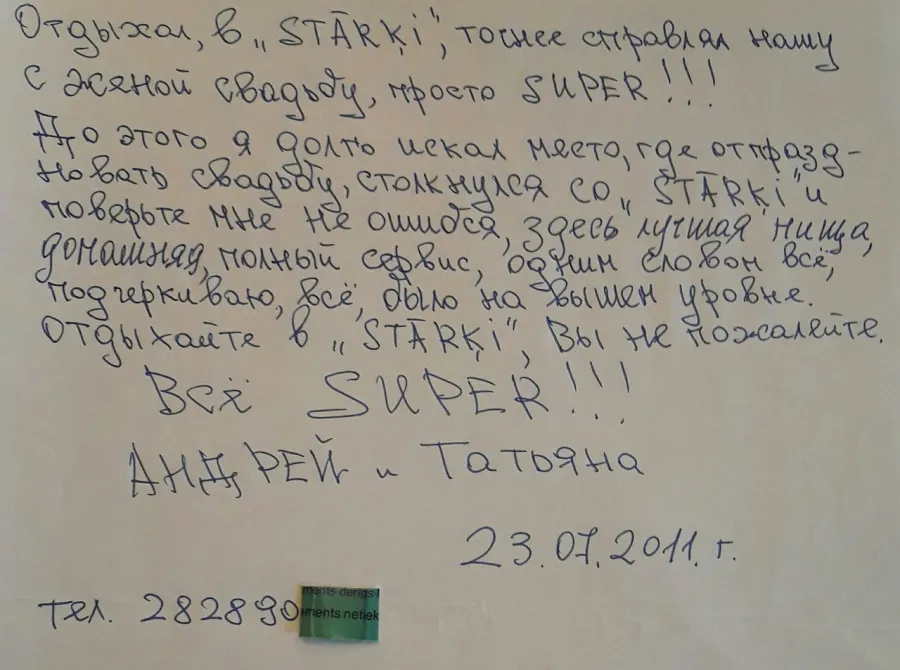 Отдыхал, в „STĀRĶi“, точнее справлял нашу
с жяной свадьбу, просто SUPER!!!
До этого я долго искал место, где отпразд-
новать свадьбу, столкнулся со „STĀRĶi“ и
поверьте мне не ошибся, здесь лучшая пища,
домашняя, полный сервис, одним словом всё,
подчеркиваю, всё, было на вышем уровне.
Отдыхайте в „STĀRĶi“, Вы не пожалейте.
Всё SUPER!!!
АНДРЕЙ и Татьяна
23.07.2011. г.
тел. 282890
ments derīgs
ements netiek